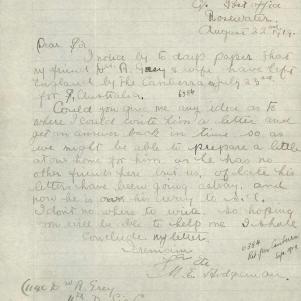 C/o Post Office
Rosewater
August 22nd 1919.
Dear Sir
I notice by to days paper that
my friend Wm R. Grey & wife have left
England by the Canberra July 23rd
for S. Australia. 6384
Could you give me any idea as to
where I could write him a letter and
get an answer back in time. so as
we might be able to prepare a little
at our home for him, as he has no
other friends here but us, of late his
letters have been going astray, and
now he is on his way to S.A.
I don't no where to write. so hoping
you will be able to help me I shall
conclude my letter
I remain
Yrs Etc
M. E. Hodgeman.
6384
Ret per Canberra
Sept 1919
Wm R. Grey